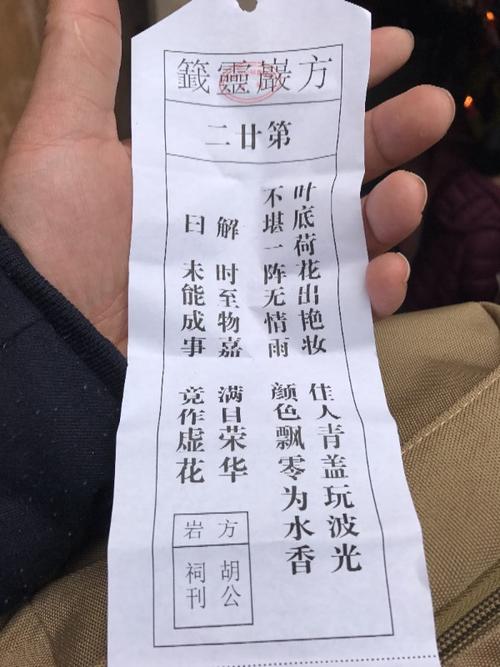 方巖靈籤
第廿二
叶底荷花出艳妆 佳人青盖玩波光
不堪一阵无情雨 颜色飘零为水香
解 时至物嘉 满目荣华
曰 未能成事 竟作虚花
方岩
胡公
祠刊